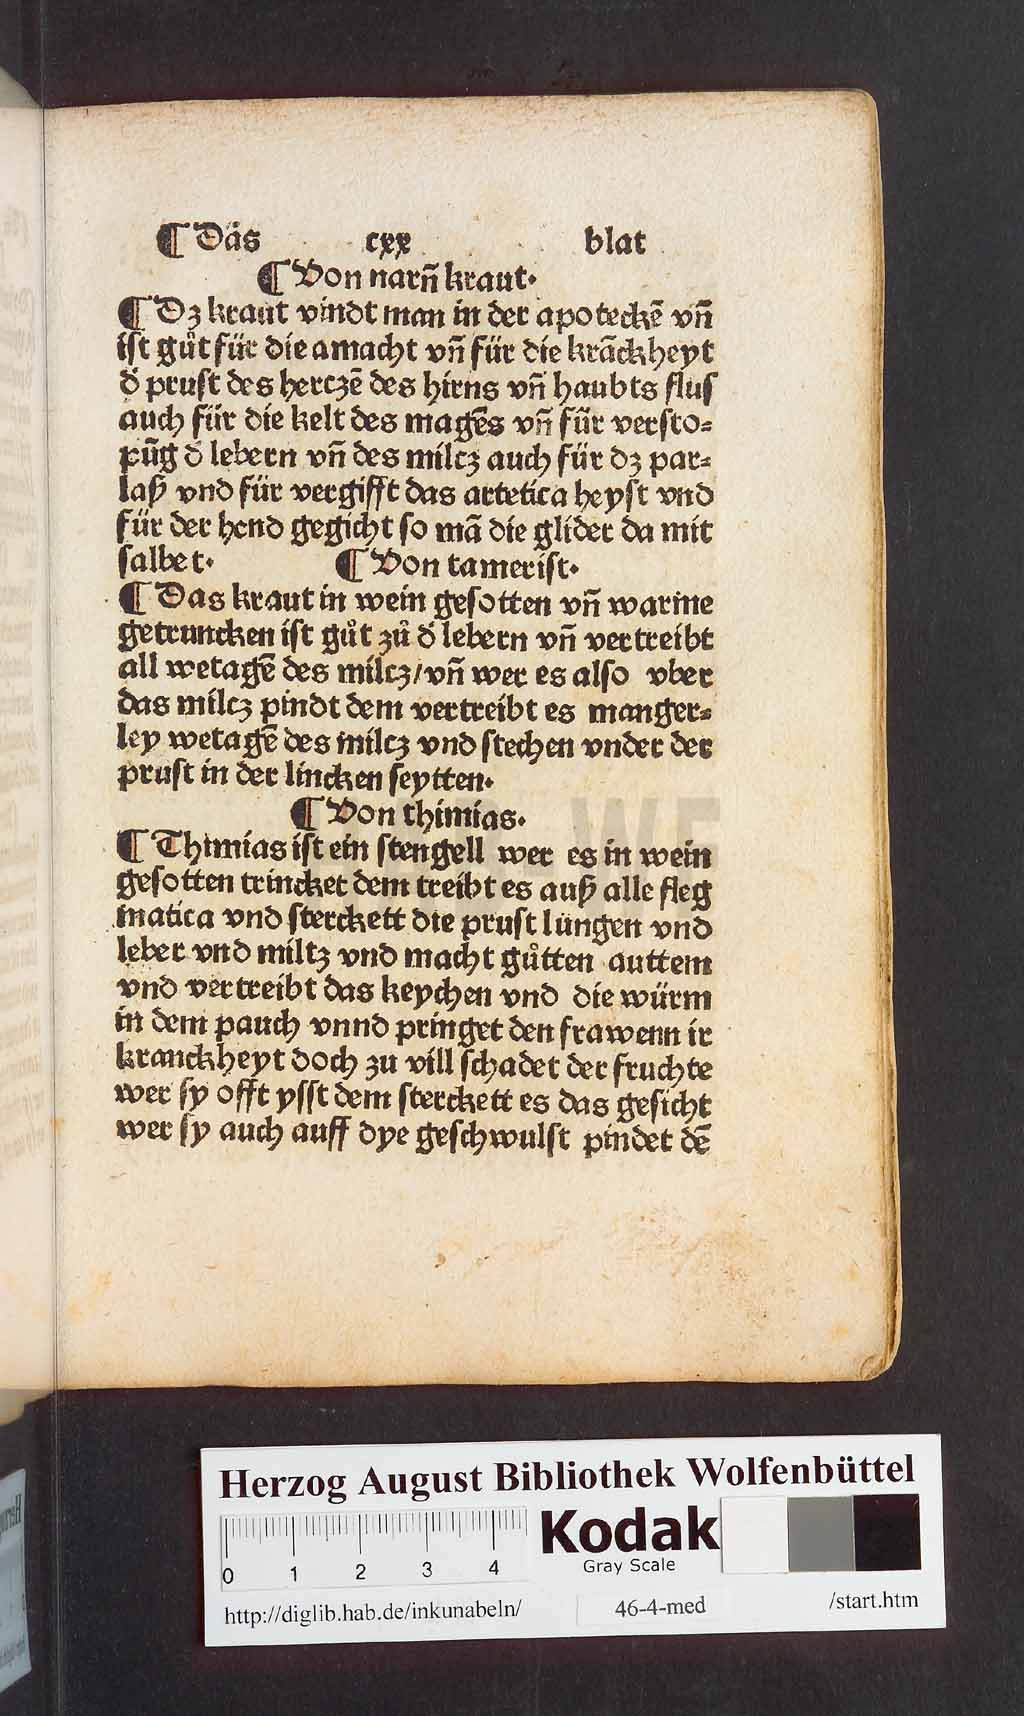 ¶ Das cxx blat
¶ Von narñ kraut.
¶ Dz kraut vindt man in der apoteckē vñ
ist gůt für die amacht vñ für die krāckheyt
d̄ prust des herczē des hirns vñ haubts fluſ
auch für die kelt des magēs vñ für versto⸗
pūg d̄ lebern vñ des milcz auch für dz par⸗
laß vnd für vergifft das artetica heyst vnd
für der hend gegicht so mā die glider da mit
salbet. ¶ Von tamerist.
¶ Das kraut in wein gesotten vñ warme
getruncken ist gůt zů d̄ lebern vñ vertreibt
all wetagē des milcz/vñ wer es also vber
das milcz pindt dem vertreibt es manger⸗
ley wetagē des milcz vnd stechen vnder der
prust in der lincken seytten.
¶ Von thimias.
¶ Thimias ist ein stengell wer es in wein
gesotten trincket dem treibt es auß alle fleg
matica vnd sterckett die prust lungen vnd
leber vnd miltz vnd macht gůtten auttem
vnd vertreibt das keychen vnd die würm
in dem pauch vnnd pringet den frawenn ir
kranckheyt doch zu vill schadet der fruchte
wer sy offt ysst dem sterckett es das gesicht
wer sy auch auff dye geschwulst pindet dē
Herzog August Bibliothek Wolfenbüttel
0 1 2 3 4
Kodak
Gray Scale
http://diglib.hab.de/inkunabeln/ 46-4-med /start.htm